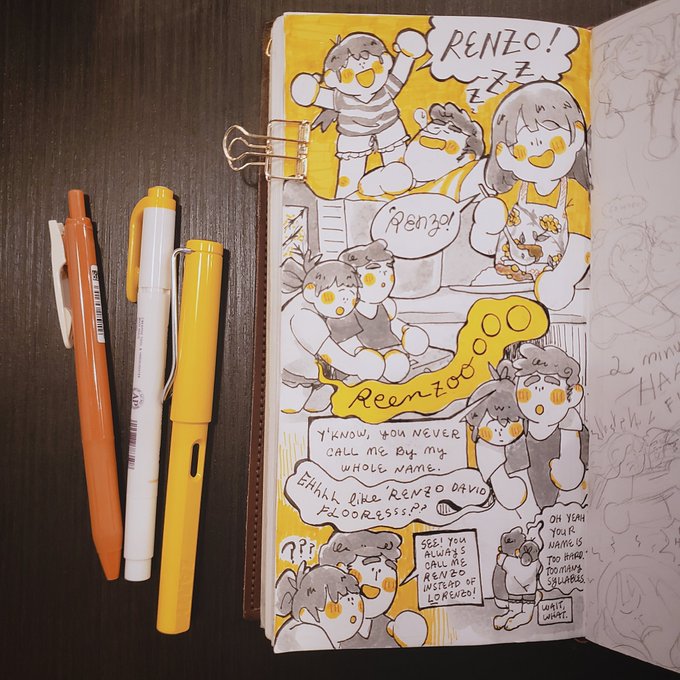 RENZO!
Z Z Z
'Renzo!
ReenZooooooo
Y'KNOW, YOU NEVER
CALL ME BY MY
WHOLE NAME.
EHhhh like 'RENZO DAVID
FLOORESSS??
???
SEE! YOU
ALWAYS
CALL ME
RENZO
INSTEAD OF
LORENZO!
OH YEAH
YOUR
NAME IS
TOO HARD.
TOO MANY
SYLLABLES.
WAIT,
WHAT.
2 minu
HAA